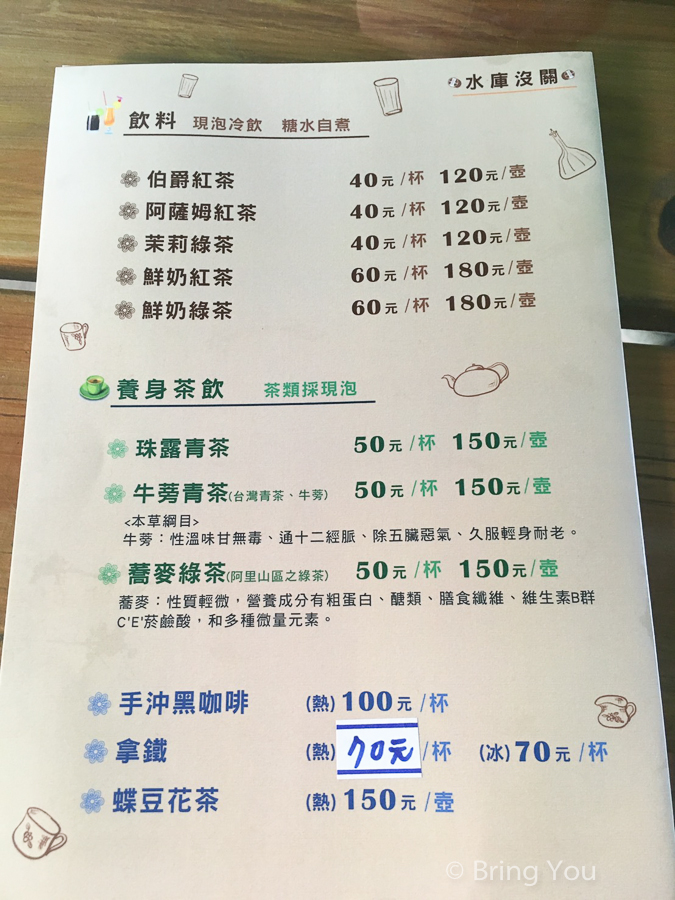 水庫沒關
飲料 現泡冷飲 糖水自煮
伯爵紅茶 40元/杯 120元/壺
阿薩姆紅茶 40元/杯 120元/壺
茉莉綠茶 40元/杯 120元/壺
鮮奶紅茶 60元/杯 180元/壺
鮮奶綠茶 60元/杯 180元/壺
養身茶飲 茶類採現泡
珠露青茶 50元/杯 150元/壺
牛蒡青茶(台灣青茶、牛蒡) 50元/杯 150元/壺
<本草綱目>
牛蒡：性溫味甘無毒、通十二經脈、除五臟惡氣、久服輕身耐老。
蕎麥綠茶(阿里山區之綠茶) 50元/杯 150元/壺
蕎麥：性質輕微，營養成分有粗蛋白、醣類、膳食纖維、維生素B群
C'E'菸鹼酸，和多種微量元素。
手沖黑咖啡 (熱)100元/杯
拿鐵 (熱)70元/杯 (冰)70元/杯
蝶豆花茶 (熱)150元/壺
© Bring You